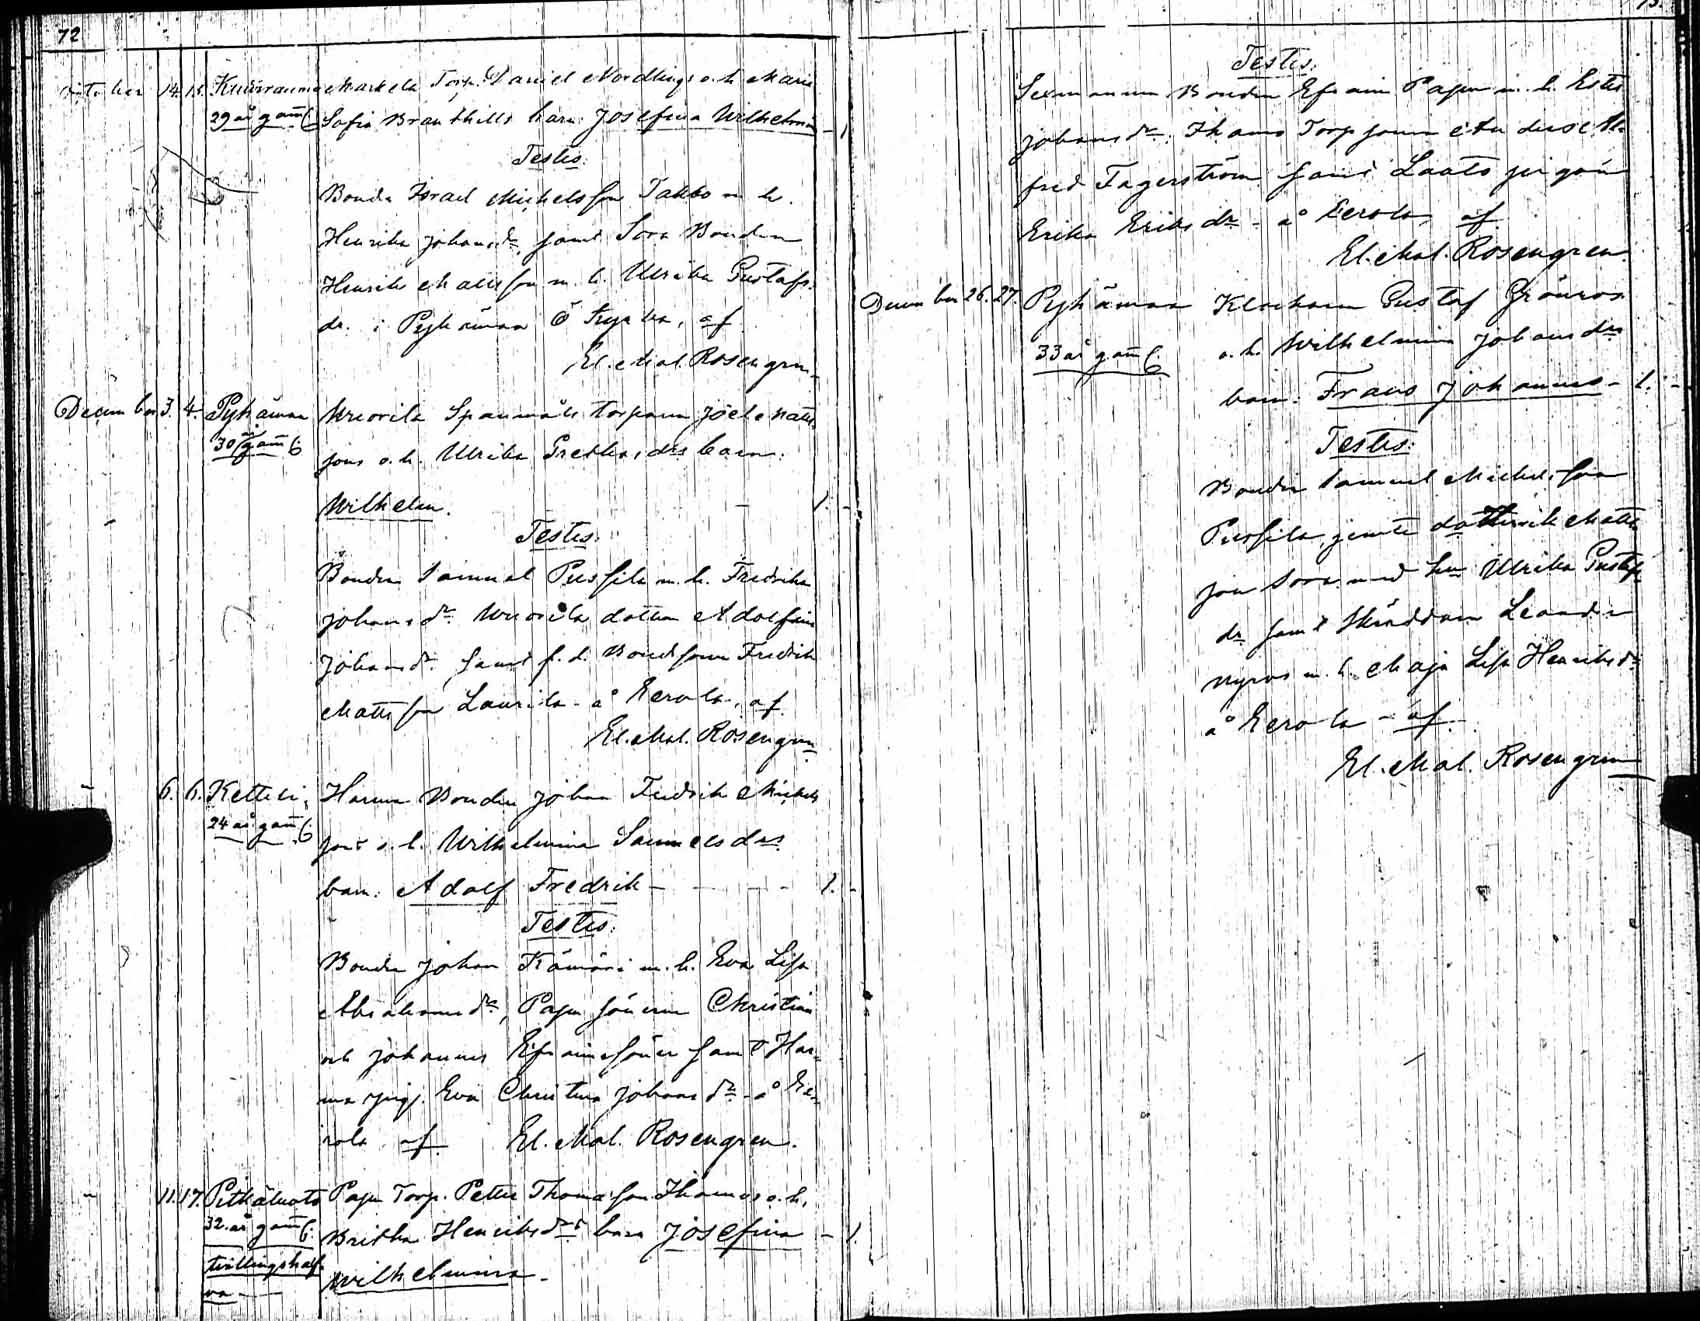 72
October 14. 15. Kuusrauma Markela Torp. Daniel Nordlings o. h. Maria
29 år gam. Sofia Brantkills barn: Josefina Wilhelmina - 1
Testes:
Bonden Israel Michelsson Takko m. h.
Henrika Johansdr, samt Sora Bonden
Henrik Mattsson m. h. Ulrika Gustafs
dr. i Pyhämaa Ö kyrka, af
El. Mal. Rosengren
December 3. 4. Pyhämaa Wuorila Spanmåls torparen Joel Matts
30 år gam sons o. h. Ulrika Grethasdrs barn:
Wilhelm. - 1. -
Testes:
Bonden Samuel Pussila m. h. Fredrika
Johansdr. Wuorila dottren Adolfina
Johansdr. samt f. d. Bondsonen Fredrik
Mattsson Laurila - å Kerola, af
El. Mal. Rosengren
- 6. 6. Ketteli, Harma Bonden Johan Fredrik Michels
24 år gam sons o. h. Wilhelmina Samuelsdrs
barn: Adolf Fredrik - - - - 1. -
Testes:
Bonden Johan Kämäri m. h. Eva Lisa
Abrahamsdr, Papu sönerna Christian
och Johannes Efraimssöner samt Har-
ma pig. Eva Christina Johansdr - å Ke-
rola af El. Mal. Rosengren.
- 11. 17. Pitkäluoto Papu Torp. Petter Thomasson Thomas o. h.
32. år gam Britha Henriksdrs barn Josefina - 1.
tvillingshaf- Wilhelmina -
va -
Testes.
Sexmannen Bonden Efraim Papu m. h. Ester
Johansdr. Thomas Torpsonen
fred Fagerström samt Laats pigan
Erika Eriksdr - å Kerola, af
El. Mal. Rosengren.
December 26. 27. Pyhämaa Klockaren Gustaf Grönroos
33 år gam o. h. Wilhelmina Johansdrs
barn: Frans Johannes - 1. -
Testes:
Bonden Samuel Michelsson
Pussila, jemte Matts
son Sora med hu Ulrika Gustafs
dr samt Skräddaren Leander
Nyroos m. h. Maja Lisa Henriksdr
å Kerola - af
El. Mal. Rosengren